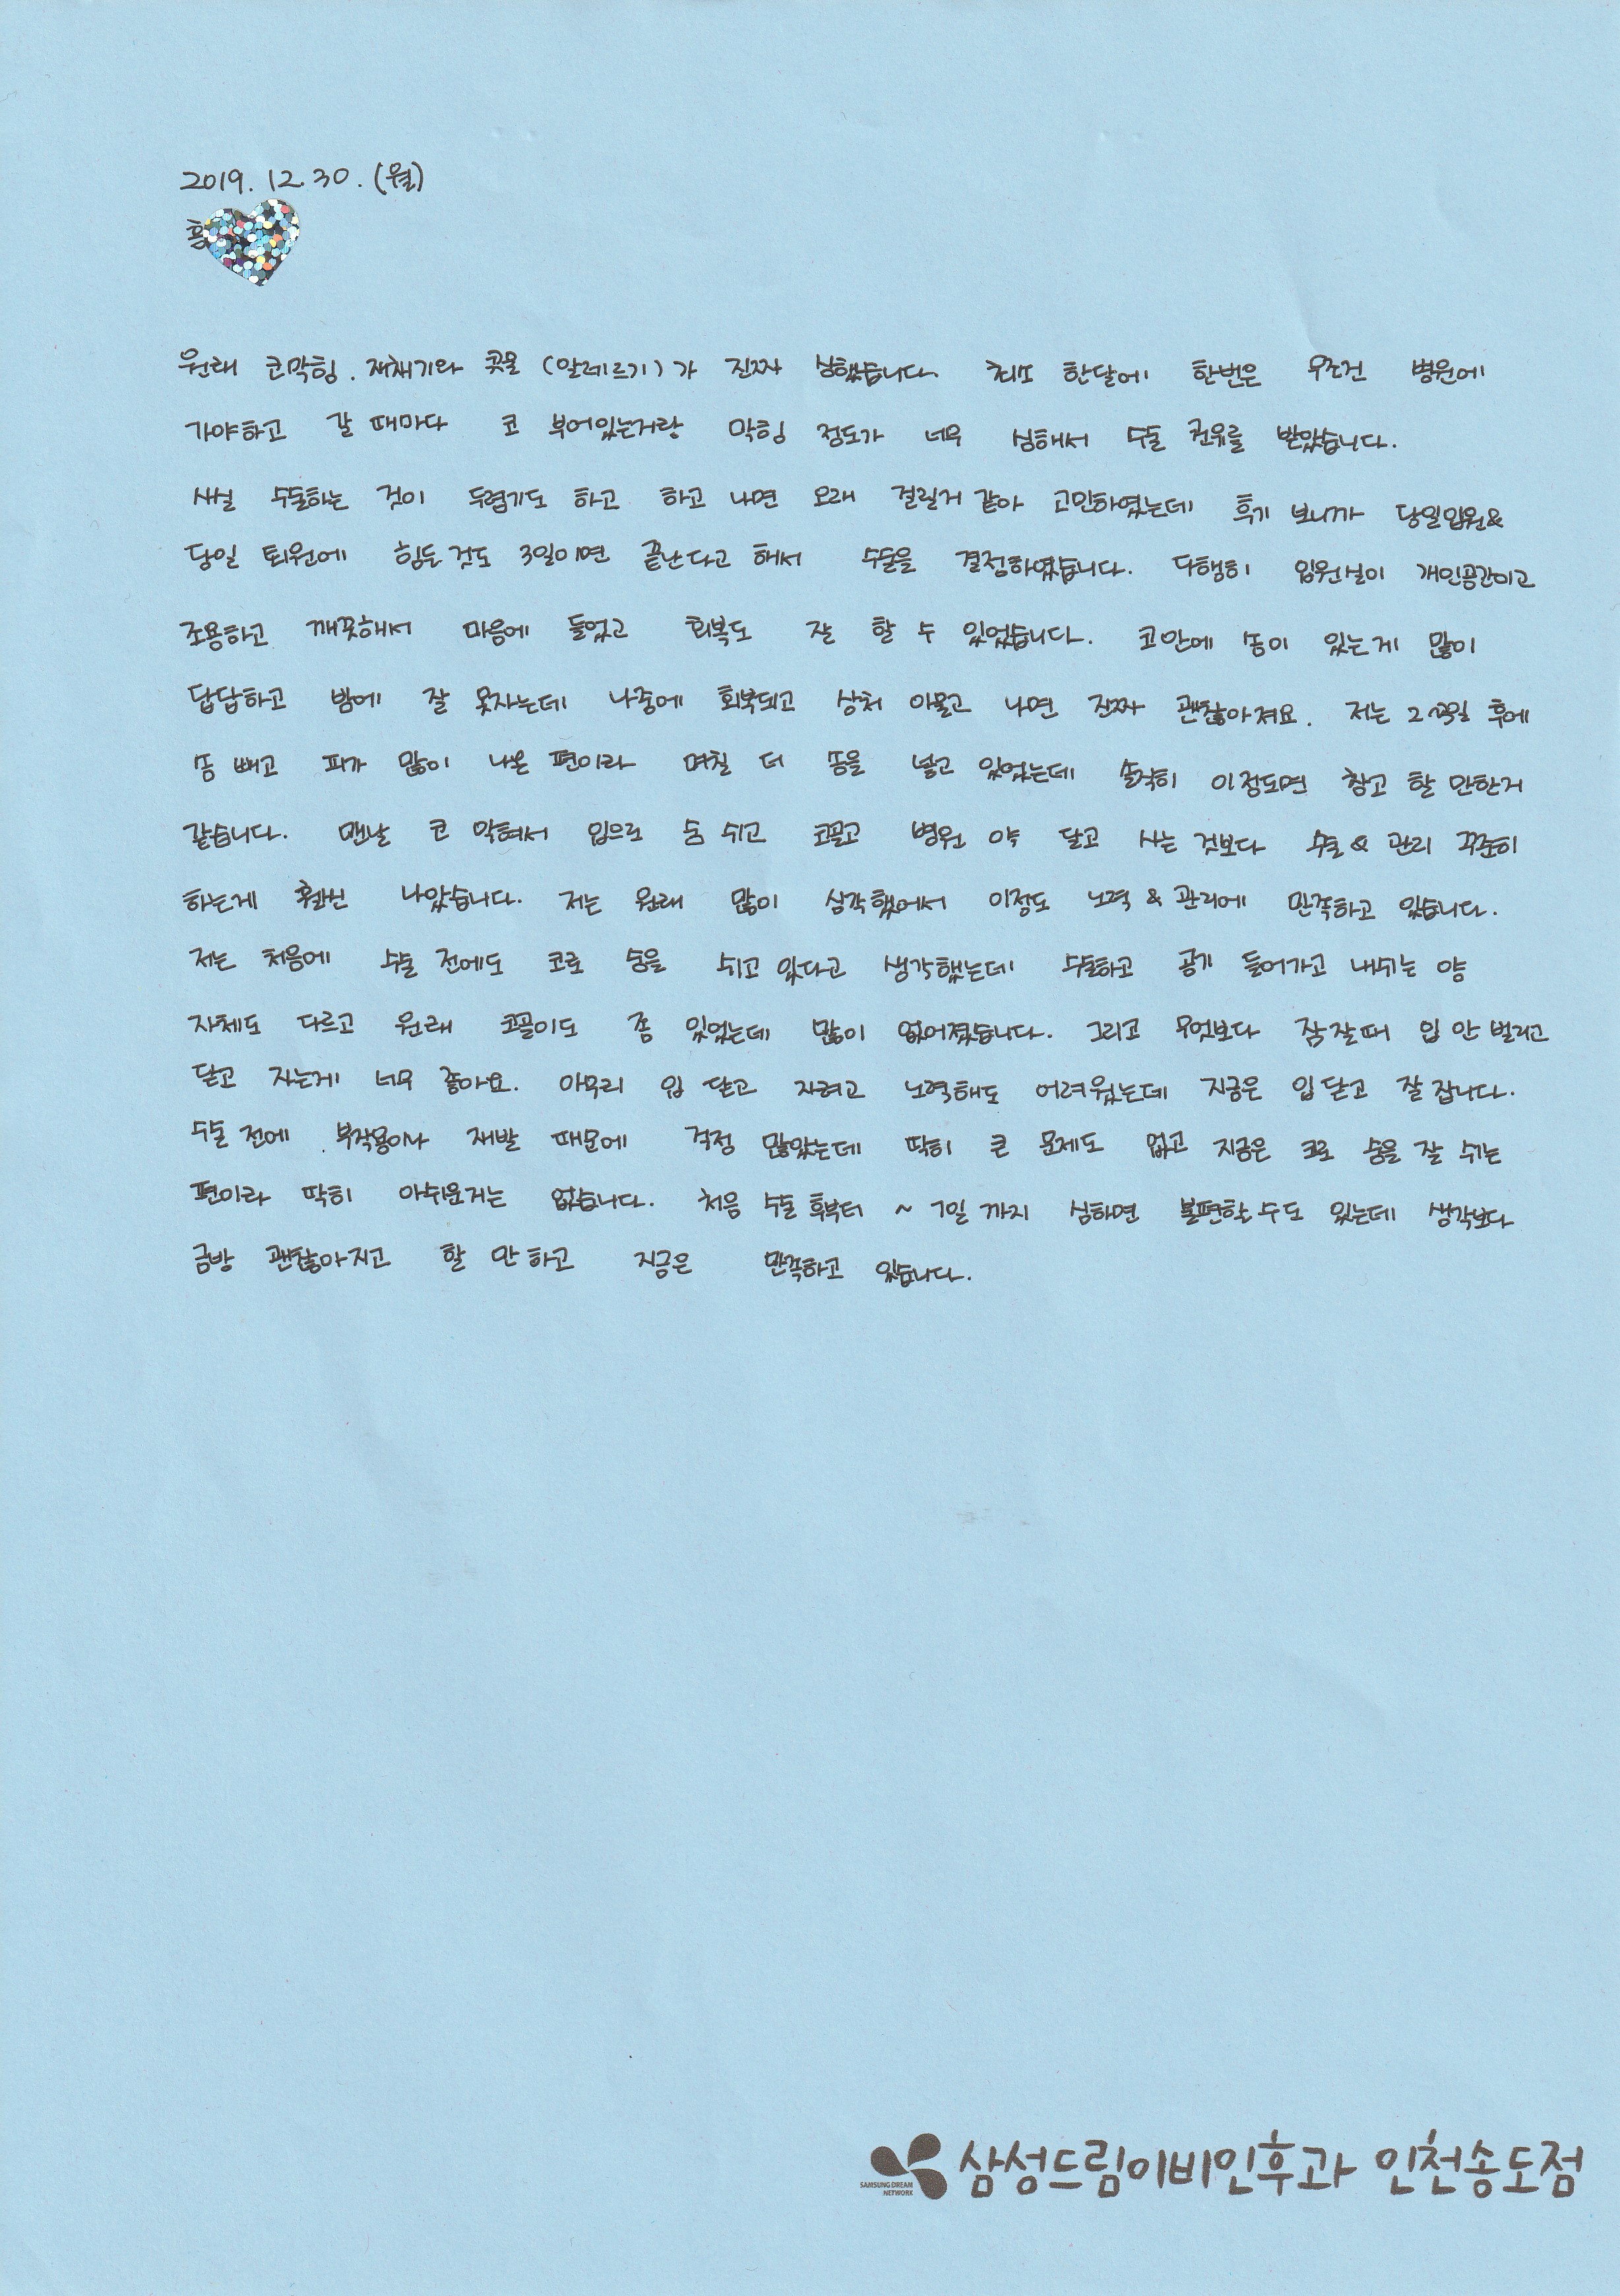 2019. 12. 30. (월)
원래 코막힘. 재채기와 콧물 (알레르기)가 진짜 심했습니다. 최소 한달에 한번은 무조건 병원에
가야하고 갈 때마다 코 부어있는거랑 막힘 정도가 너무 심해서 수술 권유를 받았습니다.
사실 수술하는 것이 두렵기도 하고 하고 나면 오래 걸릴거 같아 고민하였는데 후기 보니까 당일입원&
당일 퇴원에 힘든 것도 3일이면 끝난다고 해서 수술을 결정하였습니다. 다행히 입원실이 개인공간이고
조용하고 깨끗해서 마음에 들었고 회복도 잘 할 수 있었습니다. 코안에 솜이 있는게 많이
답답하고 밤에 잘 못자는데 나중에 회복되고 상처 아물고 나면 진짜 괜찮아져요. 저는 2 후에
솜 빼고 피가 많이 나온 편이라 며칠 더 솜을 넣고 있었는데 솔직히 이정도면 참고 할 만한거
같습니다. 맨날 코 막혀서 입으로 숨 쉬고 코골고 병원 약 달고 사는 것보다 수술 & 관리 꾸준히
하는게 훨씬 나았습니다. 저는 원래 많이 심각했어서 이정도 노력 & 관리에 만족하고 있습니다.
저는 처음에 수술 전에도 코로 숨을 쉬고 있다고 생각했는데 수술하고 공기 들어가고 내쉬는 양
자체도 다르고 원래 코골이도 좀 있었는데 많이 없어졌습니다. 그리고 무엇보다 잠잘때 입 안 벌리고
닫고 자는게 너무 좋아요. 아무리 입 닫고 자려고 노력해도 어려웠는데 지금은 입 닫고 잘 잡니다.
수술 전에 부작용이나 재발 때문에 걱정 많았는데 딱히 큰 문제도 없고 지금은 코로 숨을 잘 쉬는
편이라 딱히 아쉬운거는 없습니다. 처음 수술 후부터 ~ 7일 까지 심하면 불편할 수도 있는데 생각보다
금방 괜찮아지고 할 만 하고 지금은 만족하고 있습니다.
삼성드림이비인후과 인천송도점
SAMSUNG DREAM
NETWORK